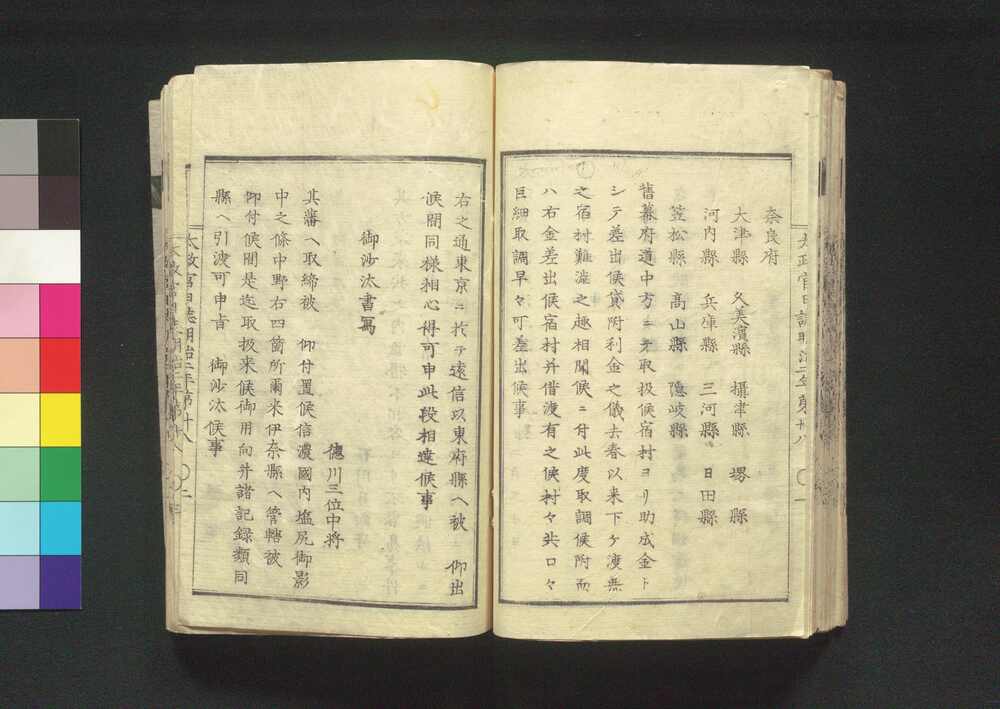 太政官日誌明治二年第廿八 〇一
奈良府
大津縣 久美濱縣 攝津縣 堺縣
河内縣 兵庫縣 三河縣 日田縣
笠松縣 高山縣 隠岐縣
舊幕府道中方ニテ取扱候宿村ヨリ助成金ト
シテ差出候貸附利金之儀去春以来下ケ渡無
之宿村難澁之趣相聞候ニ付此度取調候附而
ハ右金差出候宿村并借渡有之候村々共口々
巨細取調早々可差出候事
右之通東京ニ於テ遠信以東府縣ヘ被 仰出
候間同様相心得可申此段相達候事
御沙汰書寫
德川三位中将
其藩ヘ取締被 仰付置候信濃國内塩尻御影
中之條中野右四箇所爾来伊奈縣ヘ管轄被
仰付候間是迄取扱来候御用向并諸記録類同
縣ヘ引渡可申旨 御沙汰候事
太政官日誌明治二年第廿八 〇二